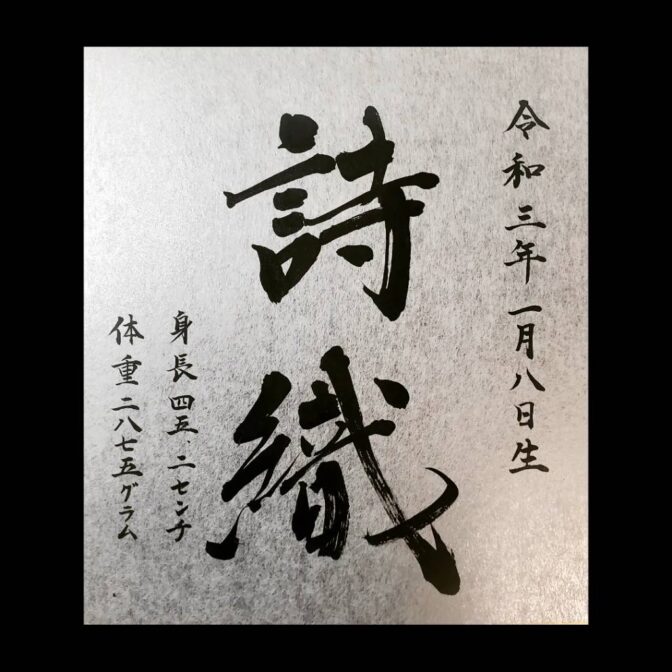 令和三年一月八日生
詩織
身長四五.二センチ
体重二八七五グラム